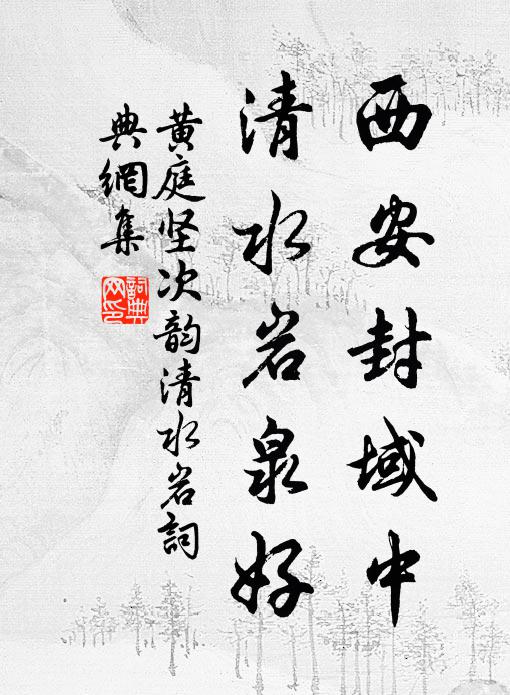 西安封域中
清水岩泉好
黄庭坚次韵清水岩詞
典網集
詞典網印